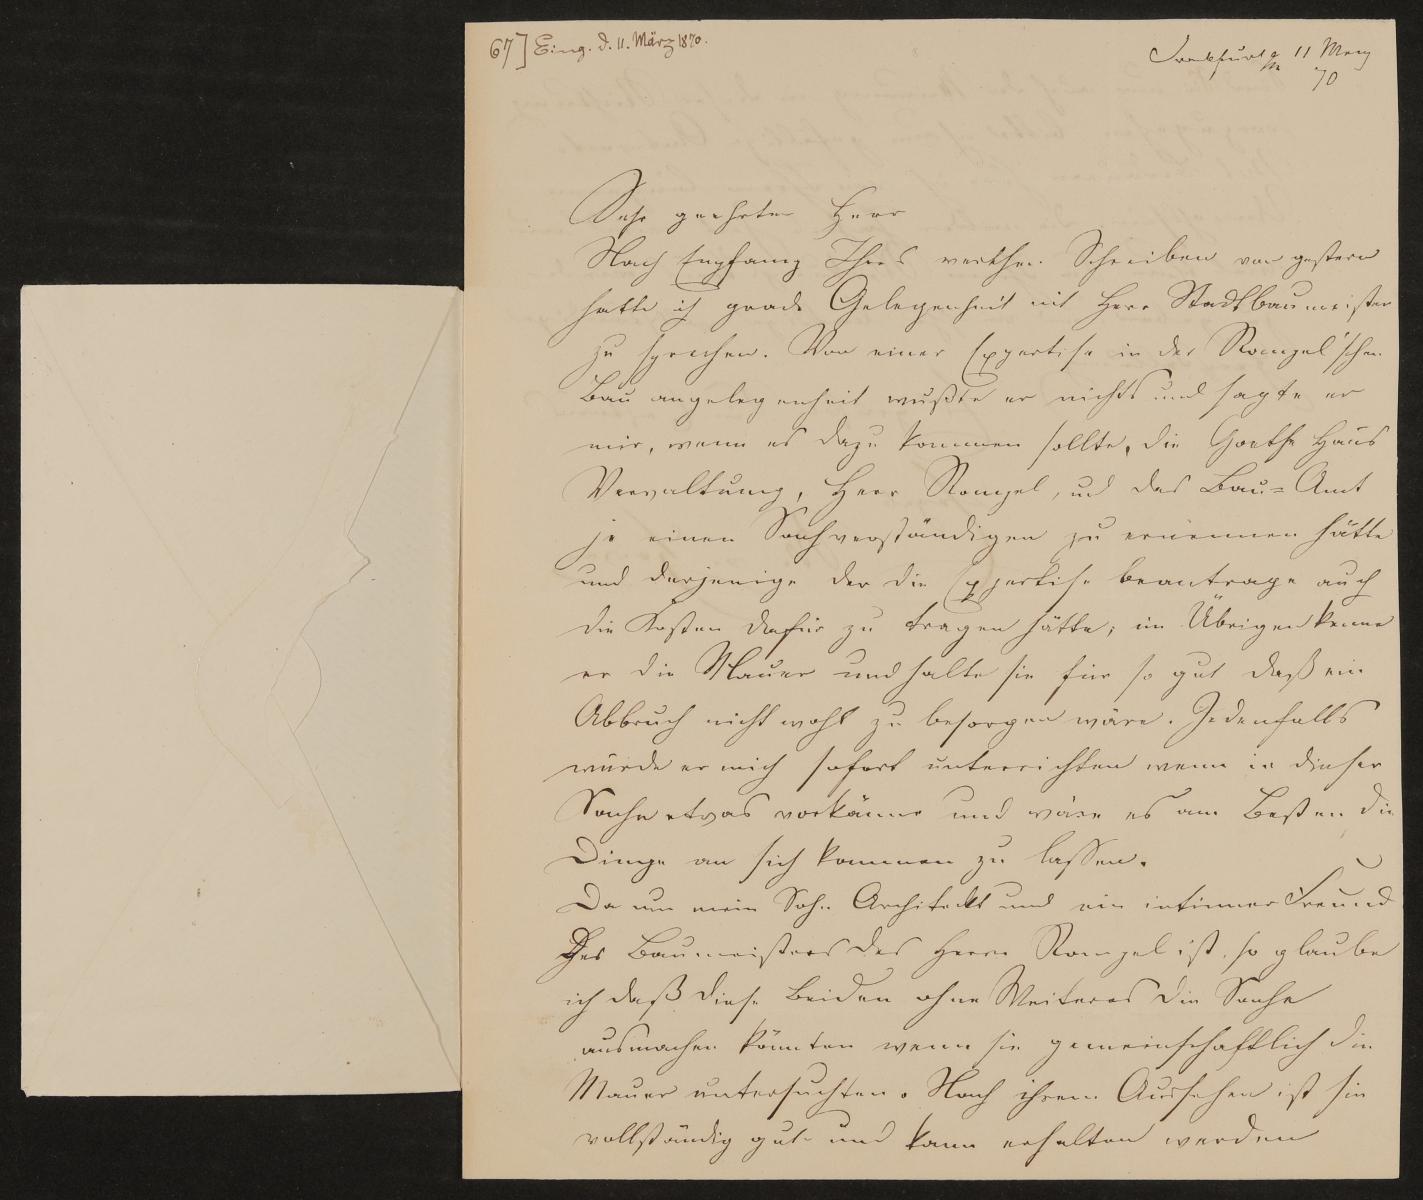 67] Eing. d. 11. März 1870.
Frankfurt a/m 11 Merz
70
Sehr geehrter Herr
Nach Empfang Ihres werthen Schreiben von gestern
hatte ich grade Gelegenheit mit Herr Stadtbaumeister
zu sprechen. Von einer Expertise in der Rompel'schen
Bau angelegenheit wußte er nichts und sagte er
mir, wenn es dazu kommen sollte, die Goethe Haus
Verwaltung, Herr Rompel, und das Bau=Amt
je einen Sachverständigen zu ernennen hätte
und derjenige der die Expertise beantrage auch
die Kosten dafür zu tragen hätte; im Übrigen kenne
er die Mauer und halte sie für so gut daß ein
Abbruch nicht wohl zu besorgen wäre. Jedenfalls
würde er mich sofort unterrichten wenn in dieser
Sache etwas vorkäme und wäre es am Besten die
Dinge an sich kommen zu lassen.
Da nun mein Sohn Architekt und ein intimer Freund
des Baumeisters des Herrn Rompel ist, so glaube
ich daß diese Beiden ohne Weiteres die Sache
ausmachen könnten wenn sie gemeinschaftlich die
Mauer untersuchten. Nach ihrem Aussehen ist sie
vollständig gut und kann erhalten werden